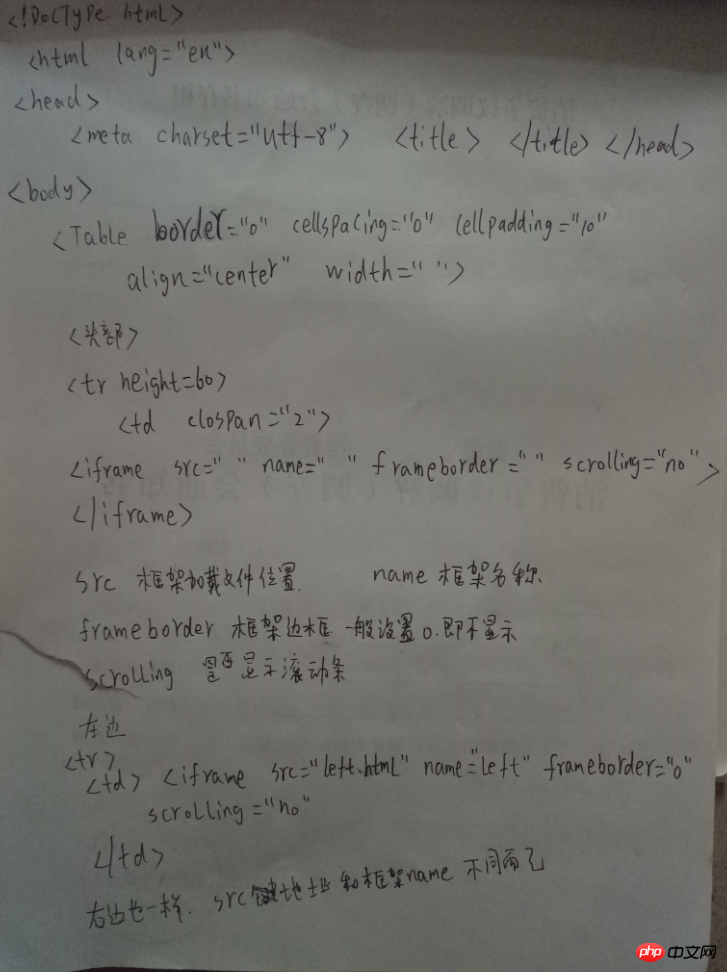 <!DocType html>
<html lang="en">
<head>
<meta charset="utf-8"> <title> </title> </head>
<body>
<Table border="0" cellspacing="0" cellpadding="10"
align="center" width=" ">
<头部>
<tr height=60>
<td clospan="2">
<iframe src=" " name=" " frameborder=" " scrolling="no">
</iframe>
src 框架加载文件位置. name 框架名称
frameborder 框架边框 一般设置0.即不显示
scrolling 是否显示滚动条
左边
<tr>
<td> <iframe src="left.html" name="left" frameborder="0"
scrolling="no"
</td>
右边也一样. src 地址和框架name 不同而已
php 中文网